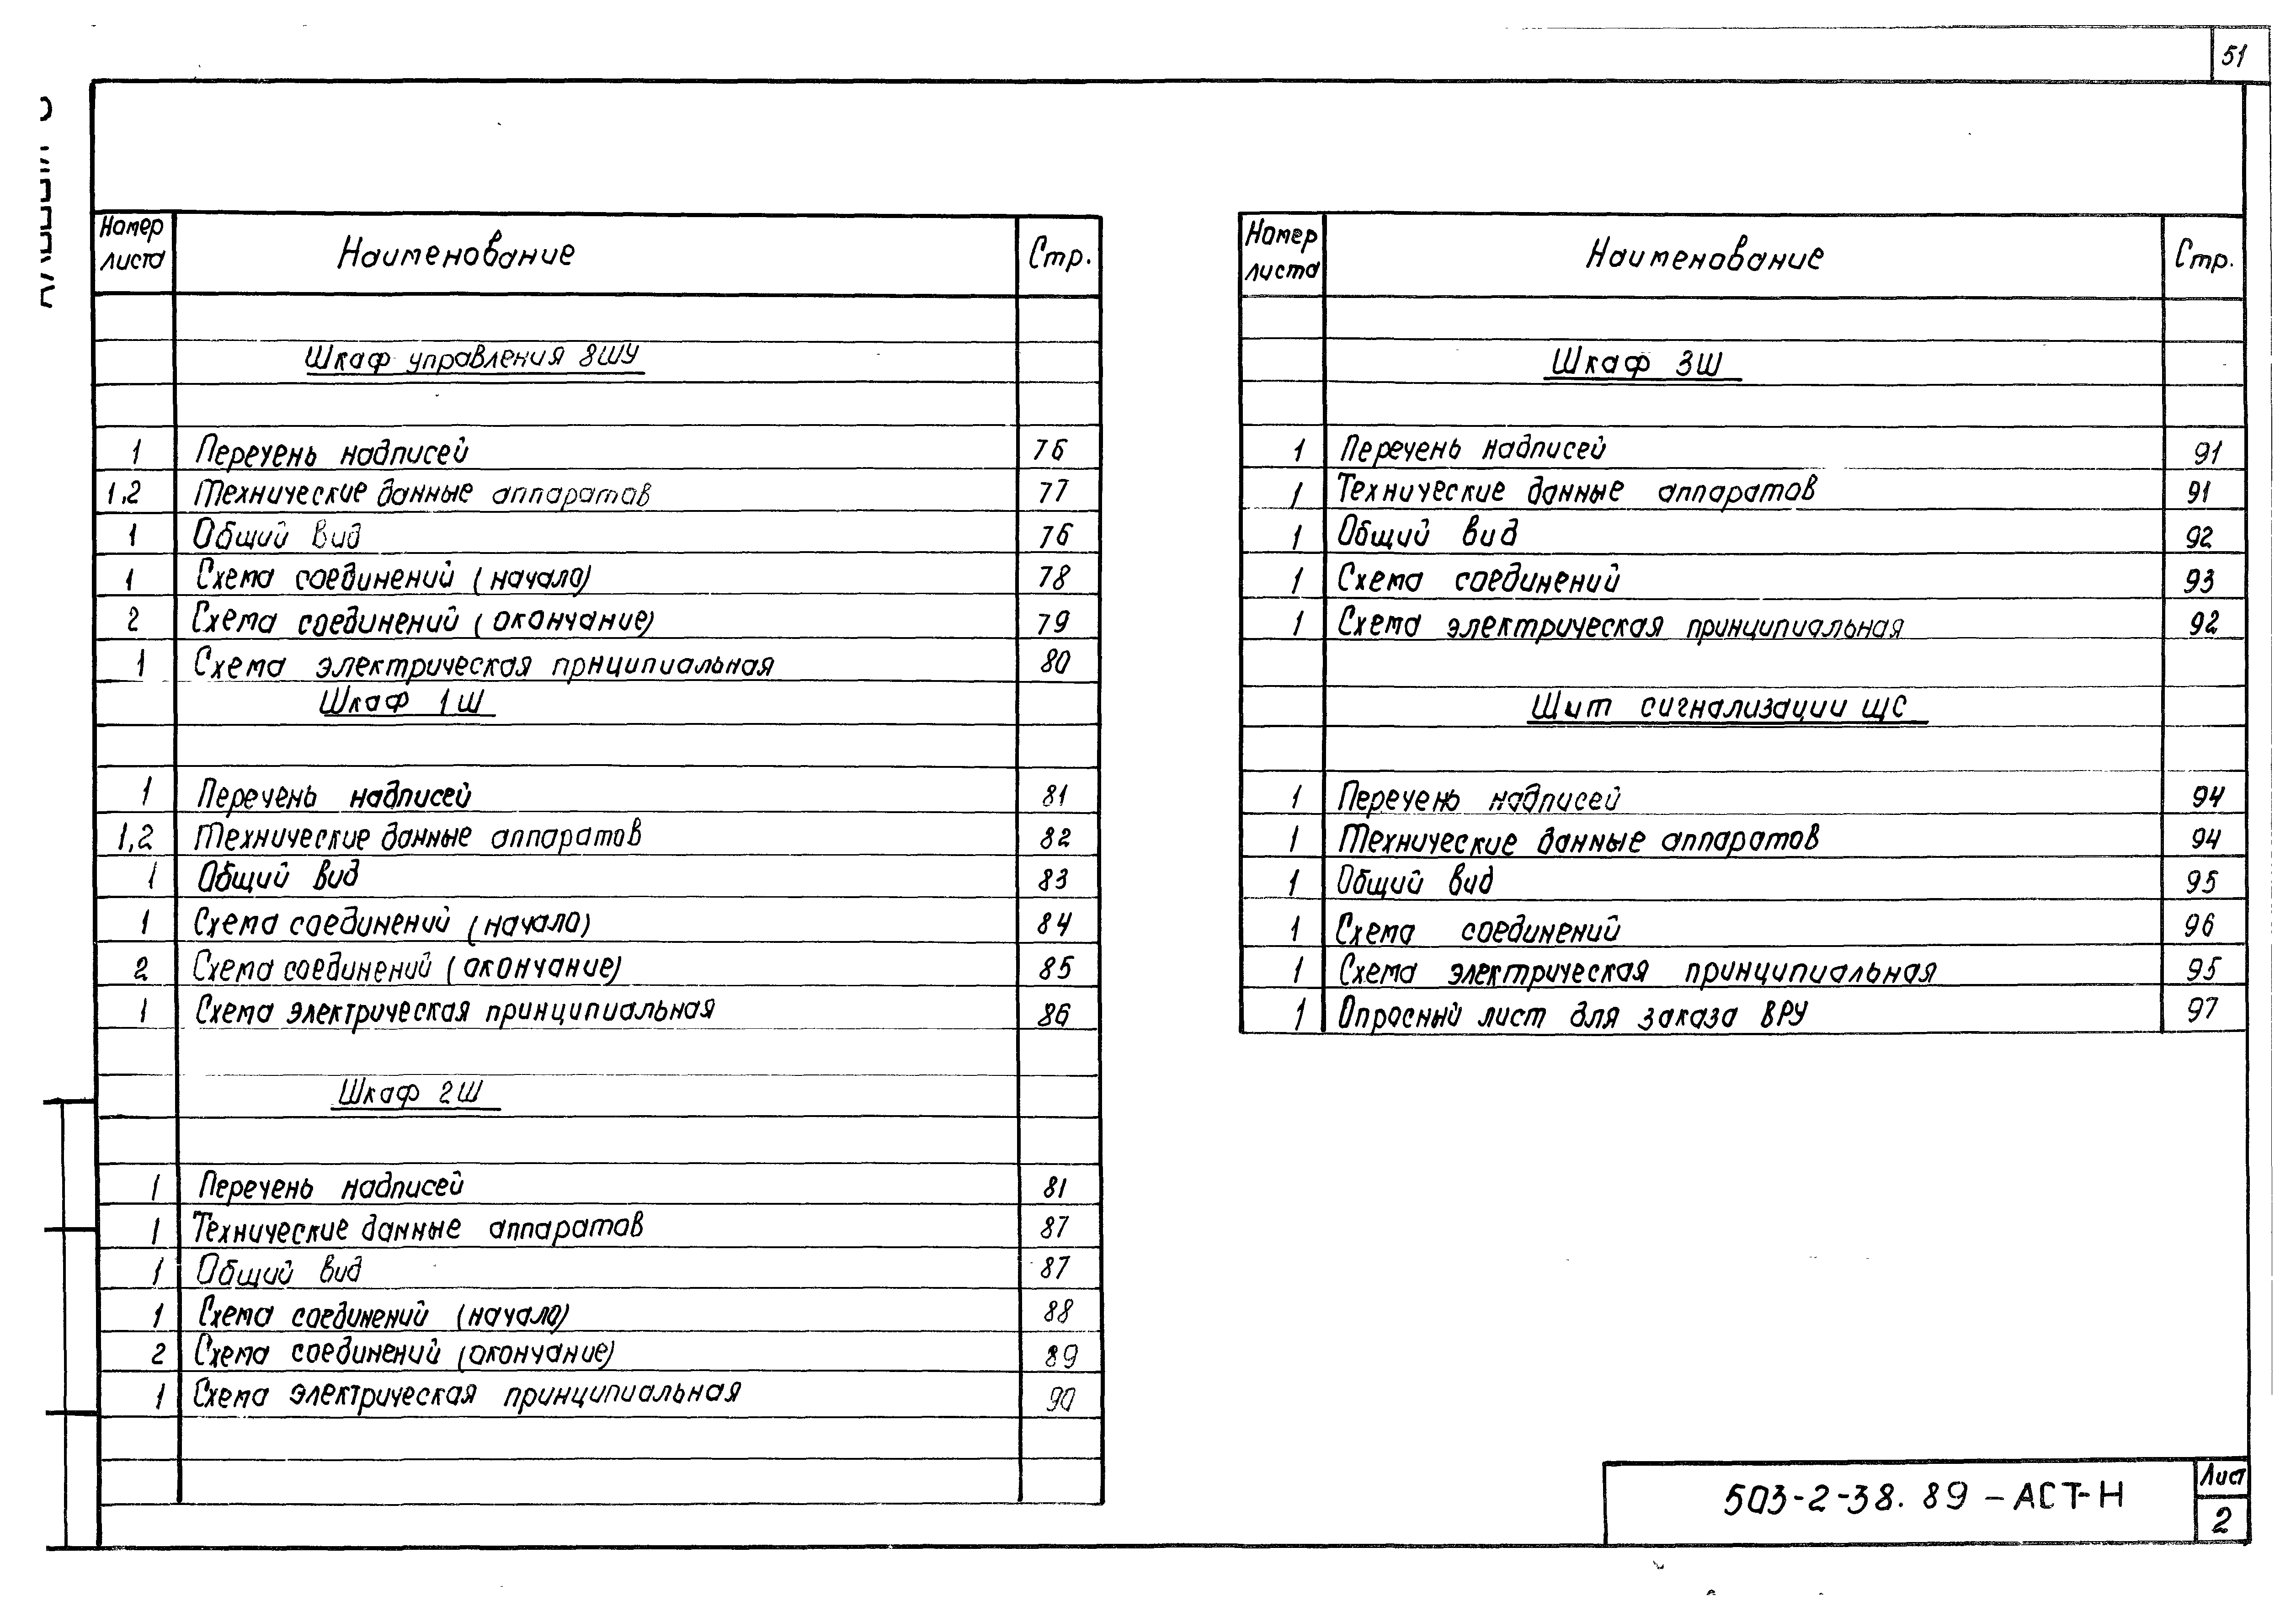 51
Номер листа | Наименование | Стр.
Шкаф управления 8ШУ
1 Перечень надписей 76
1,2 Технические данные аппаратов 77
1 Общий вид 76
1 Схема соединений (начало) 78
2 Схема соединений (окончание) 79
1 Схема электрическая прнципиальная 80
Шкаф 1Ш
1 Перечень надписей 81
1,2 Технические данные аппаратов 82
1 Общий вид 83
1 Схема соединений (начало) 84
2 Схема соединений (окончание) 85
1 Схема электрическая принципиальная 86
Шкаф 2Ш
1 Перечень надписей 81
1 Технические данные аппаратов 87
1 Общий вид 87
1 Схема соединений (начало) 88
2 Схема соединений (окончание) 89
1 Схема электрическая принципиальная 90
Номер листа | Наименование | Стр.
Шкаф 3Ш
1 Перечень надписей 91
1 Технические данные аппаратов 91
1 Общий вид 92
1 Схема соединений 93
1 Схема электрическая принципиальная 92
Щит сигнализации ЩС
1 Перечень надписей 94
1 Технические данные аппаратов 94
1 Общий вид 95
1 Схема соединений 96
1 Схема электрическая принципиальная 95
1 Опросный лист для заказа ВРУ 97
503-2-38.89-АСТ-Н
Лист
2